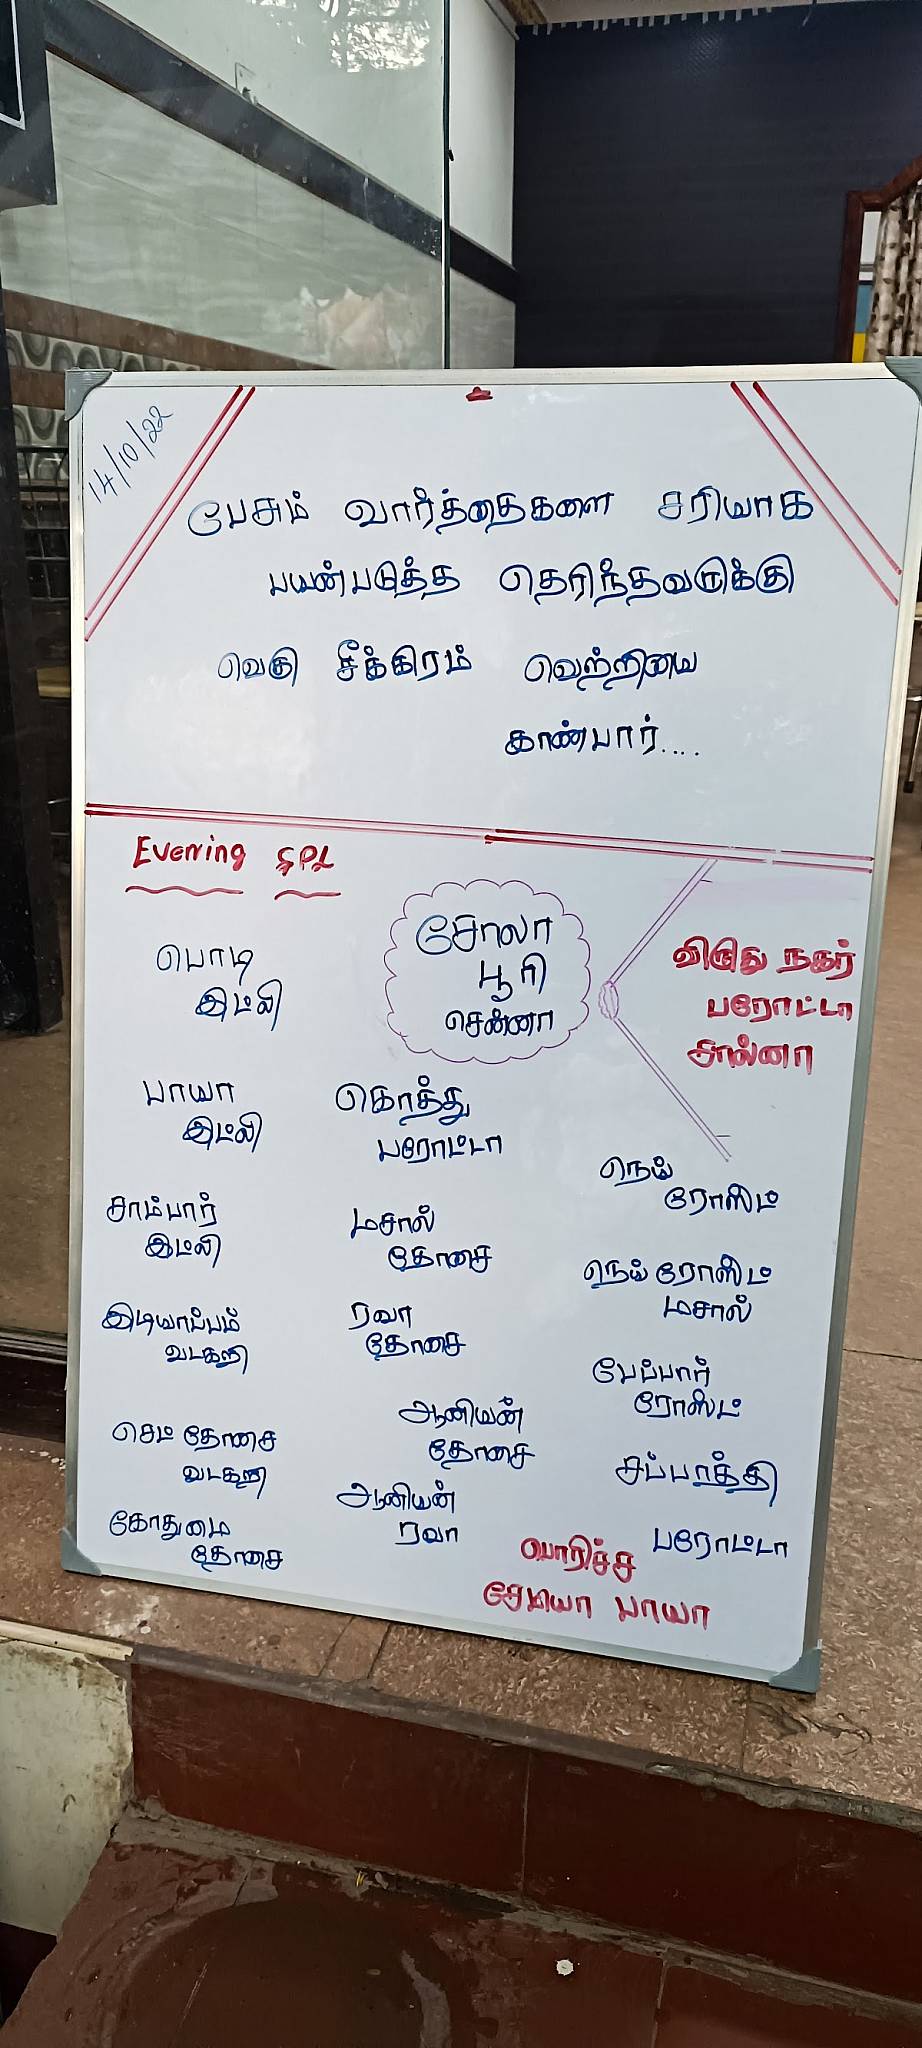 14/10/22
பேசும் வார்த்தைகளை சரியாக
பயன்படுத்த தெரிந்தவருக்கு
வெகு சீக்கிரம் வெற்றியை
காண்பார்....
Evening SPL
பொடி
இட்லி
பாயா
இட்லி
சாம்பார்
இட்லி
இடியாப்பம்
வடகறி
செட் தோசை
வடகறி
கோதுமை
தோசை
சோலா
பூரி
சென்னா
கொத்து
பரோட்டா
மசால்
தோசை
ரவா
தோசை
ஆனியன்
தோசை
ஆனியன்
ரவா
விருது நகர்
பரோட்டா
சால்னா
நெய்
ரோஸ்ட்
நெய் ரோஸ்ட்
மசால்
பேப்பார்
ரோஸ்ட்
சப்பாத்தி
பரோட்டா
பொரிச்ச
சேமியா பாயா